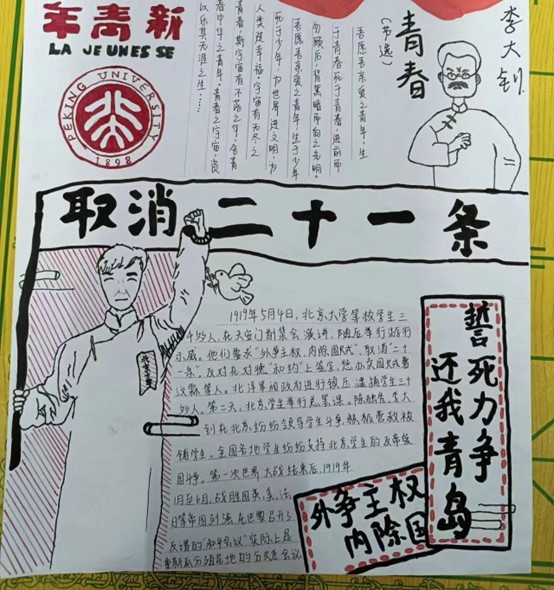 新青年
LA JEUNESSE
PEKING UNIVERSITY
1898
李大钊
青春
(节选)
吾愿吾亲爱之青年,生
于青春死于青春,进前而
勿顾后,背黑暗而向之光明。
吾愿吾亲爱之青年,生于少年
死于少年,为世界进文明,为
人类造幸福,宇宙有无尽之
青春,斯宇宙有不落之华,
春中华之青年,青春之宇宙,资
以乐其无涯之生……
取消二十一条
1919年5月4日,北京大学等校学生三
千多人,在天安门前集会演讲,随后举行游行
示威。他们要求"外争主权,内除国贼","取消"二十
一条",反对在对德"和约"上签字,惩办卖国贼曹
汝霖等人。北洋军阀政府进行镇压,逮捕学生三十
多人。第二天,北京学生举行总罢课。陈独秀、李大
钊在北京,纷纷领导学生斗争,解救营救被
捕学生。全国各地学生纷纷支持北京学生的反帝爱
国斗争。第一次世界大战结束后,1919年
1月至6月,战胜国英、美、法
日等帝国列强,在巴黎召开了
所谓的"和平会议"实际上是
重新瓜分殖民地的分赃会议
誓死力争
还我青岛
外争主权
内除国